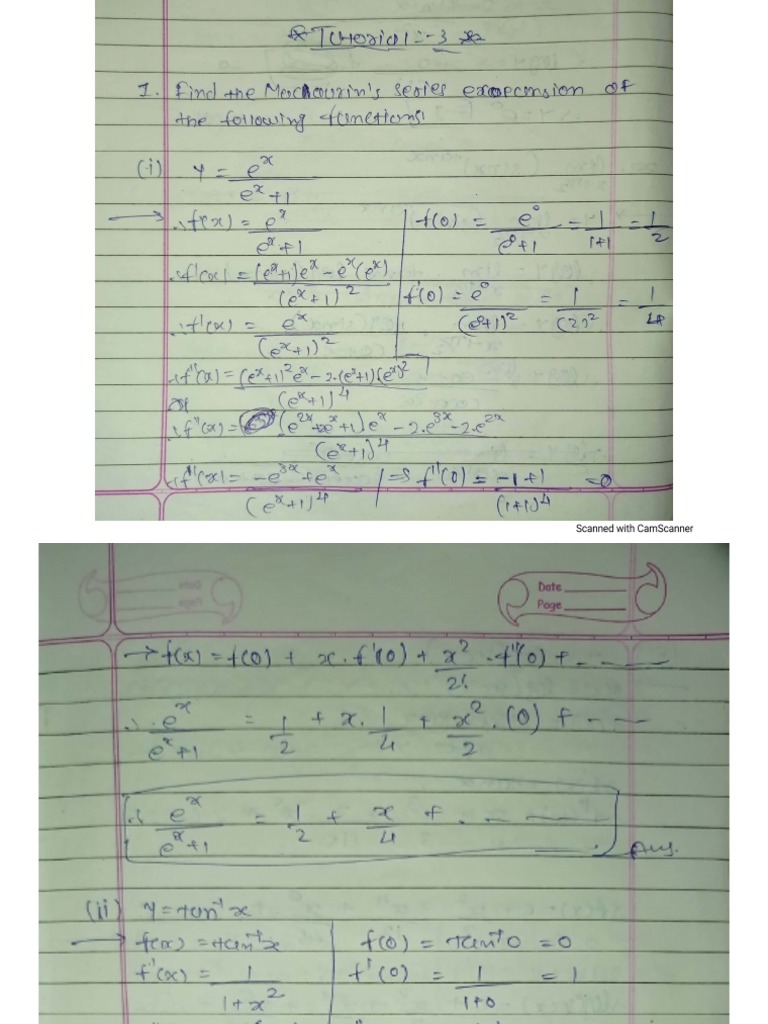 * Tutorial :- 3 *
1. Find the Maclaurin's series expension of
the following functions:
(i) y = e^x / (e^x + 1)
→ ∴ f(x) = e^x / (e^x + 1) | f(0) = e^0 / (e^0 + 1) = 1 / (1+1) = 1/2
∴ f'(x) = ((e^x+1)e^x − e^x(e^x)) / (e^x+1)^2 | f'(0) = e^0 / (e^0+1)^2 = 1 / (2)^2 = 1/4
∴ f'(x) = e^x / (e^x+1)^2
∴ f''(x) = ((e^x+1)^2 e^x − 2·(e^x+1)(e^x)^2) / (e^x+1)^4
∴ f''(x) = ((e^2x + e^x + 1)e^x − 2·e^3x − 2·e^2x) / (e^x+1)^4
∴ f''(x) = (−e^3x + e^x) / (e^x+1)^4 | ⇒ f''(0) = (−1+1) / (1+1)^4 = 0
Scanned with CamScanner
Date
Page
→ f(x) = f(0) + x·f'(0) + x^2/2! · f''(0) + - - - -
∴ e^x / (e^x+1) = 1/2 + x·1/4 + x^2/2 · (0) + - - -
∴ e^x / (e^x+1) = 1/2 + x/4 + · - - - - Ans.
(ii) y = tan^-1 x
→ f(x) = tan^-1 x | f(0) = tan^-1 0 = 0
f'(x) = 1 / (1+x^2) | f'(0) = 1 / (1+0) = 1